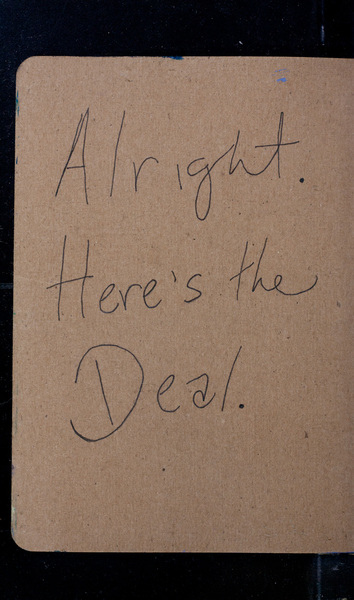 Alright.
Here's the
Deal.